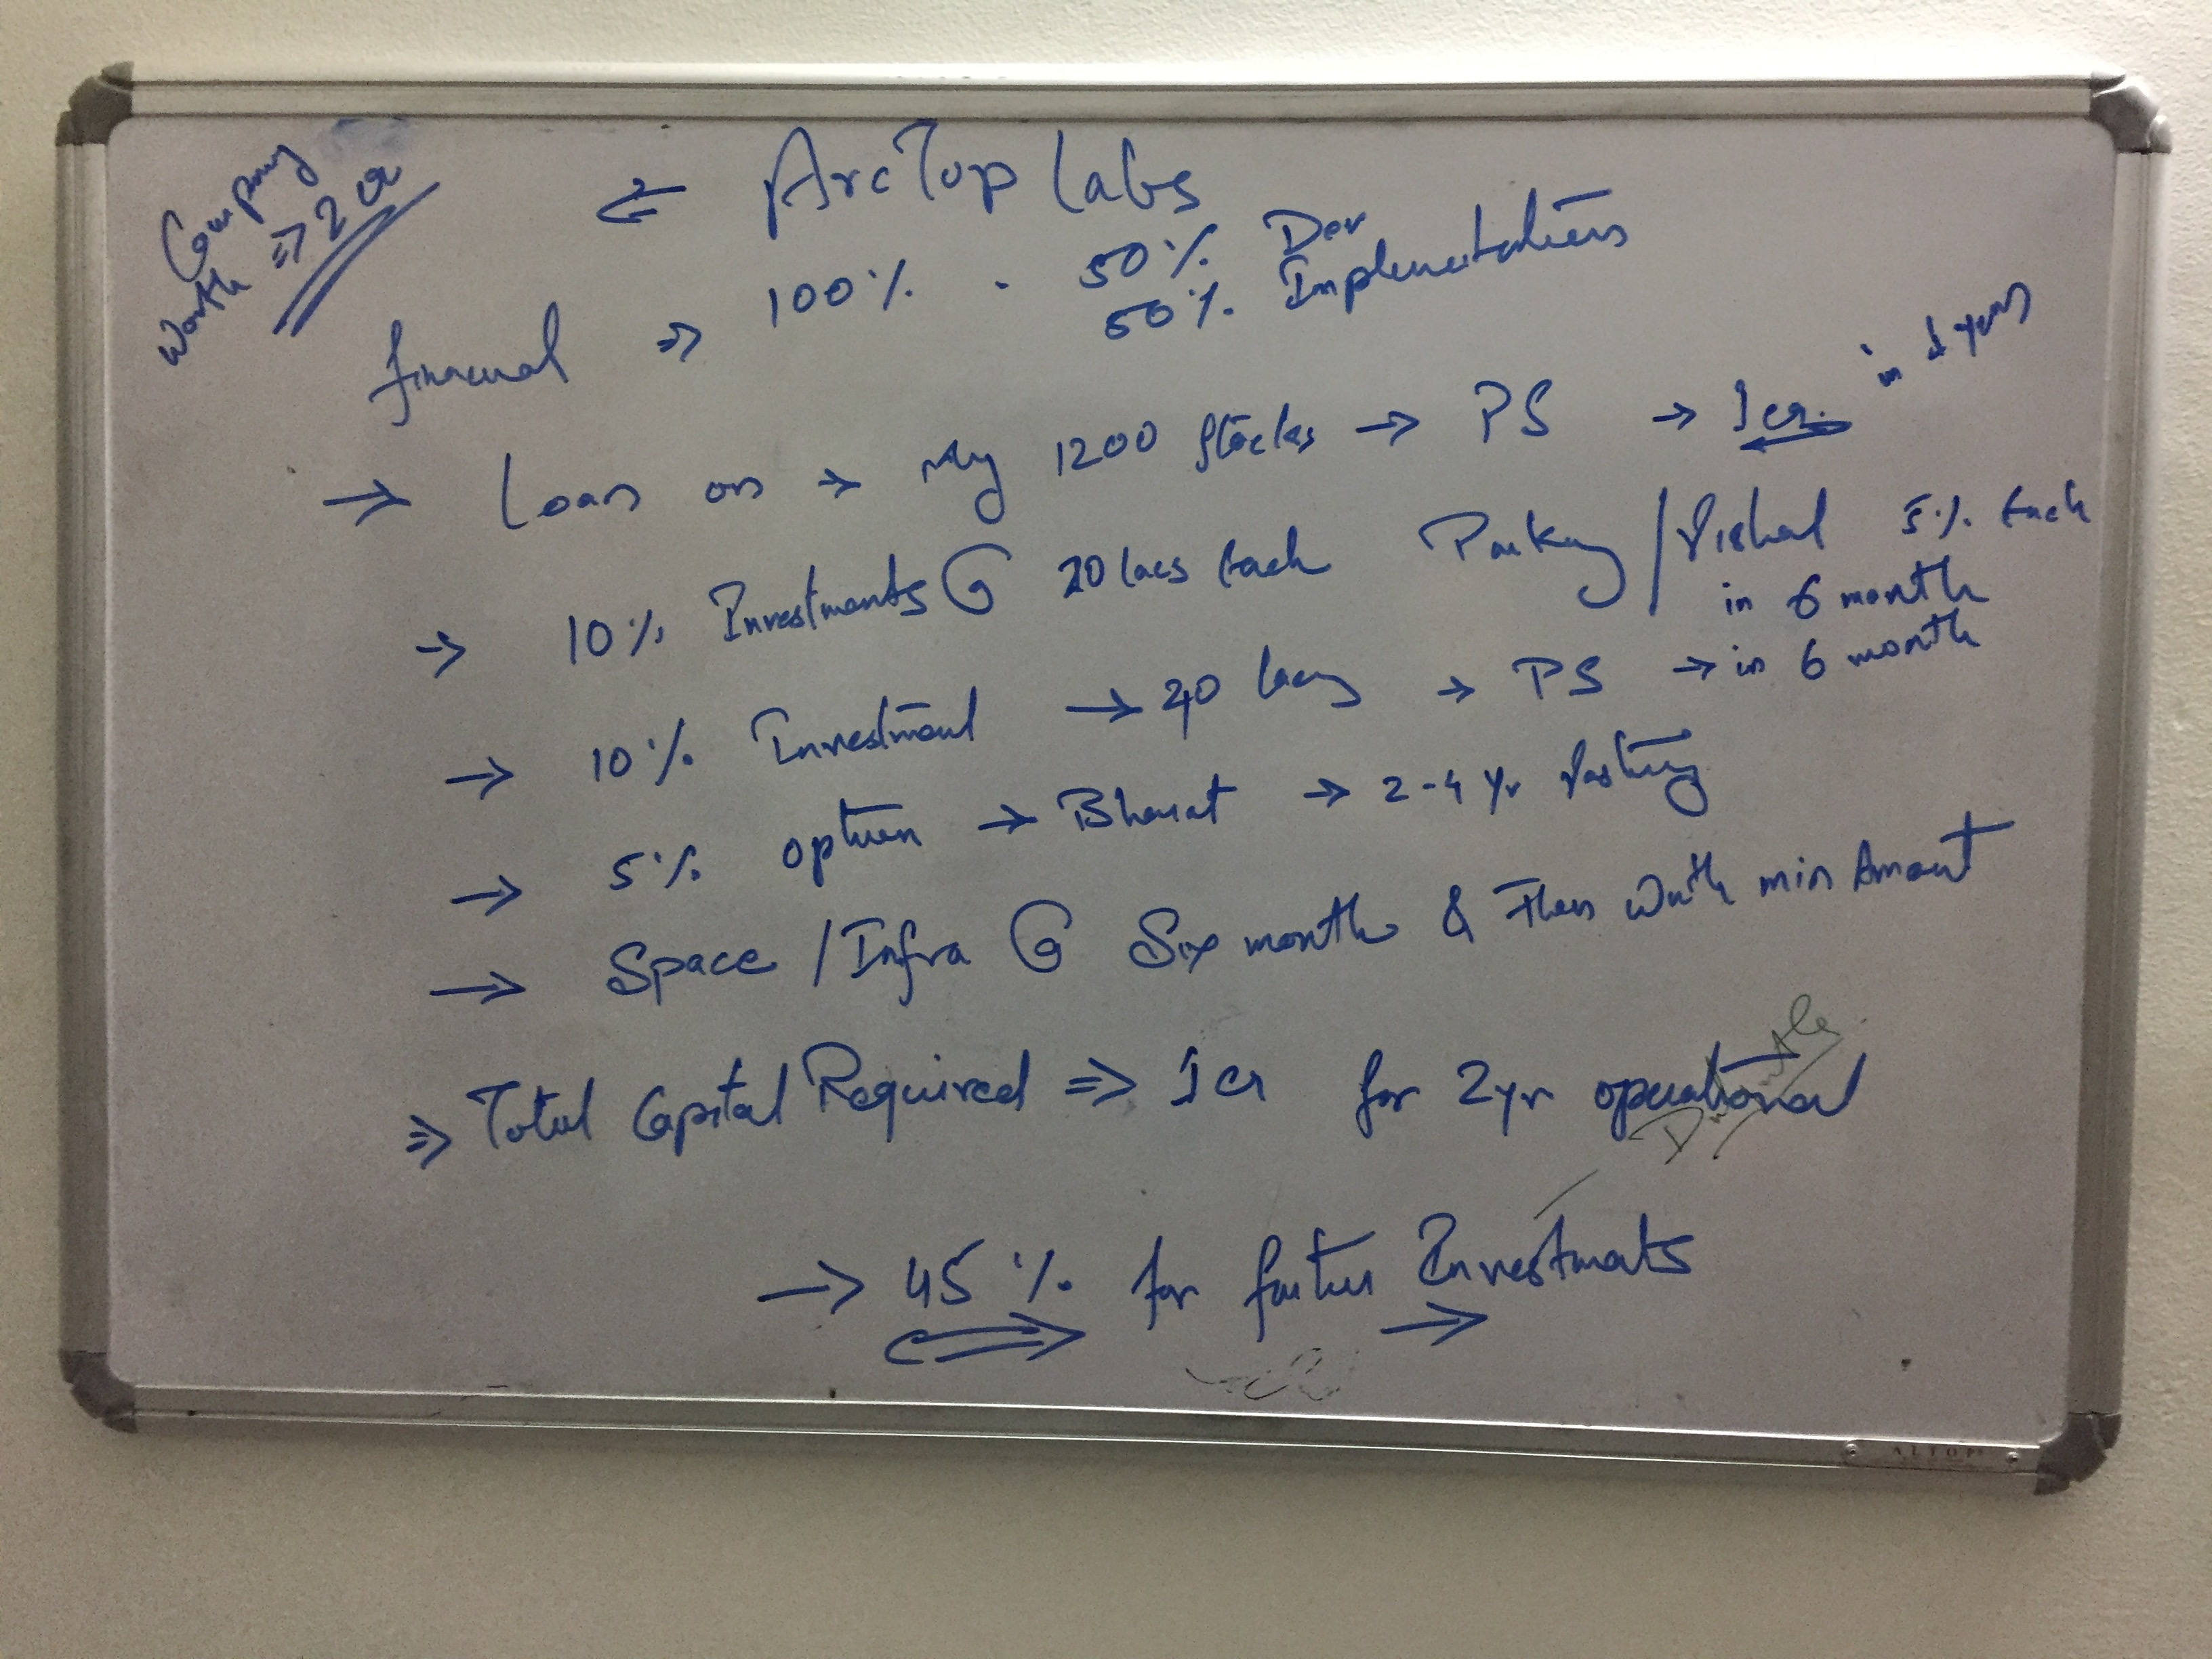 Company
Worth => 2 cr
<= ArcTop Labs
financial => 100% . 50% Dev
50% Implementations
-> Loan on -> My 1200 Stocks -> PS -> 1 cr. in 1 years
-> 10% Investments @ 20 lacs Each Panky / Vishal 5% Each
in 6 month
-> 10% Investment -> 20 lacs -> PS -> in 6 month
-> 5% option -> Bharat -> 2-4 yr Vesting
-> Space / Infra @ Six month & Then with min Amount
=> Total Capital Required => 1 cr for 2 yr operational
-> 45% for further Investments ->
ALTOP